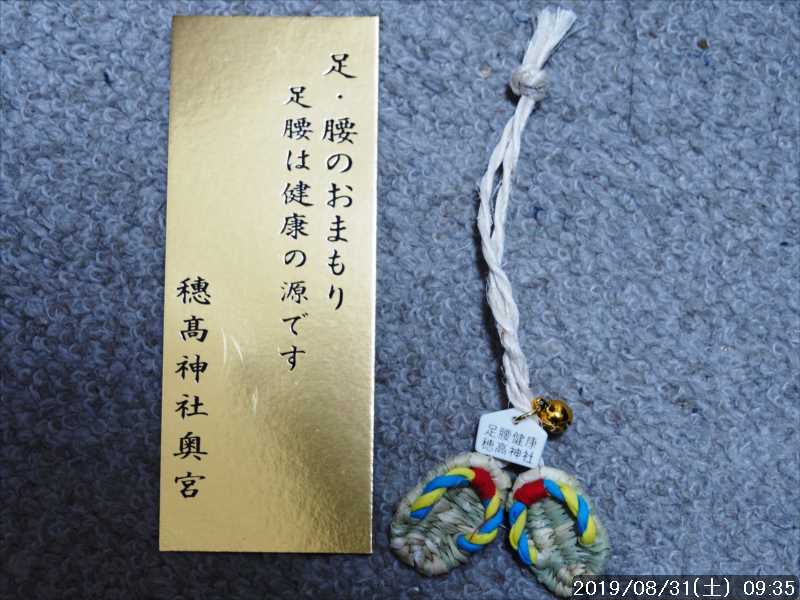 足・腰のおまもり
足腰は健康の源です
穗髙神社奥宮
足腰健康
穂高神社
2019/08/31(土) 09:35